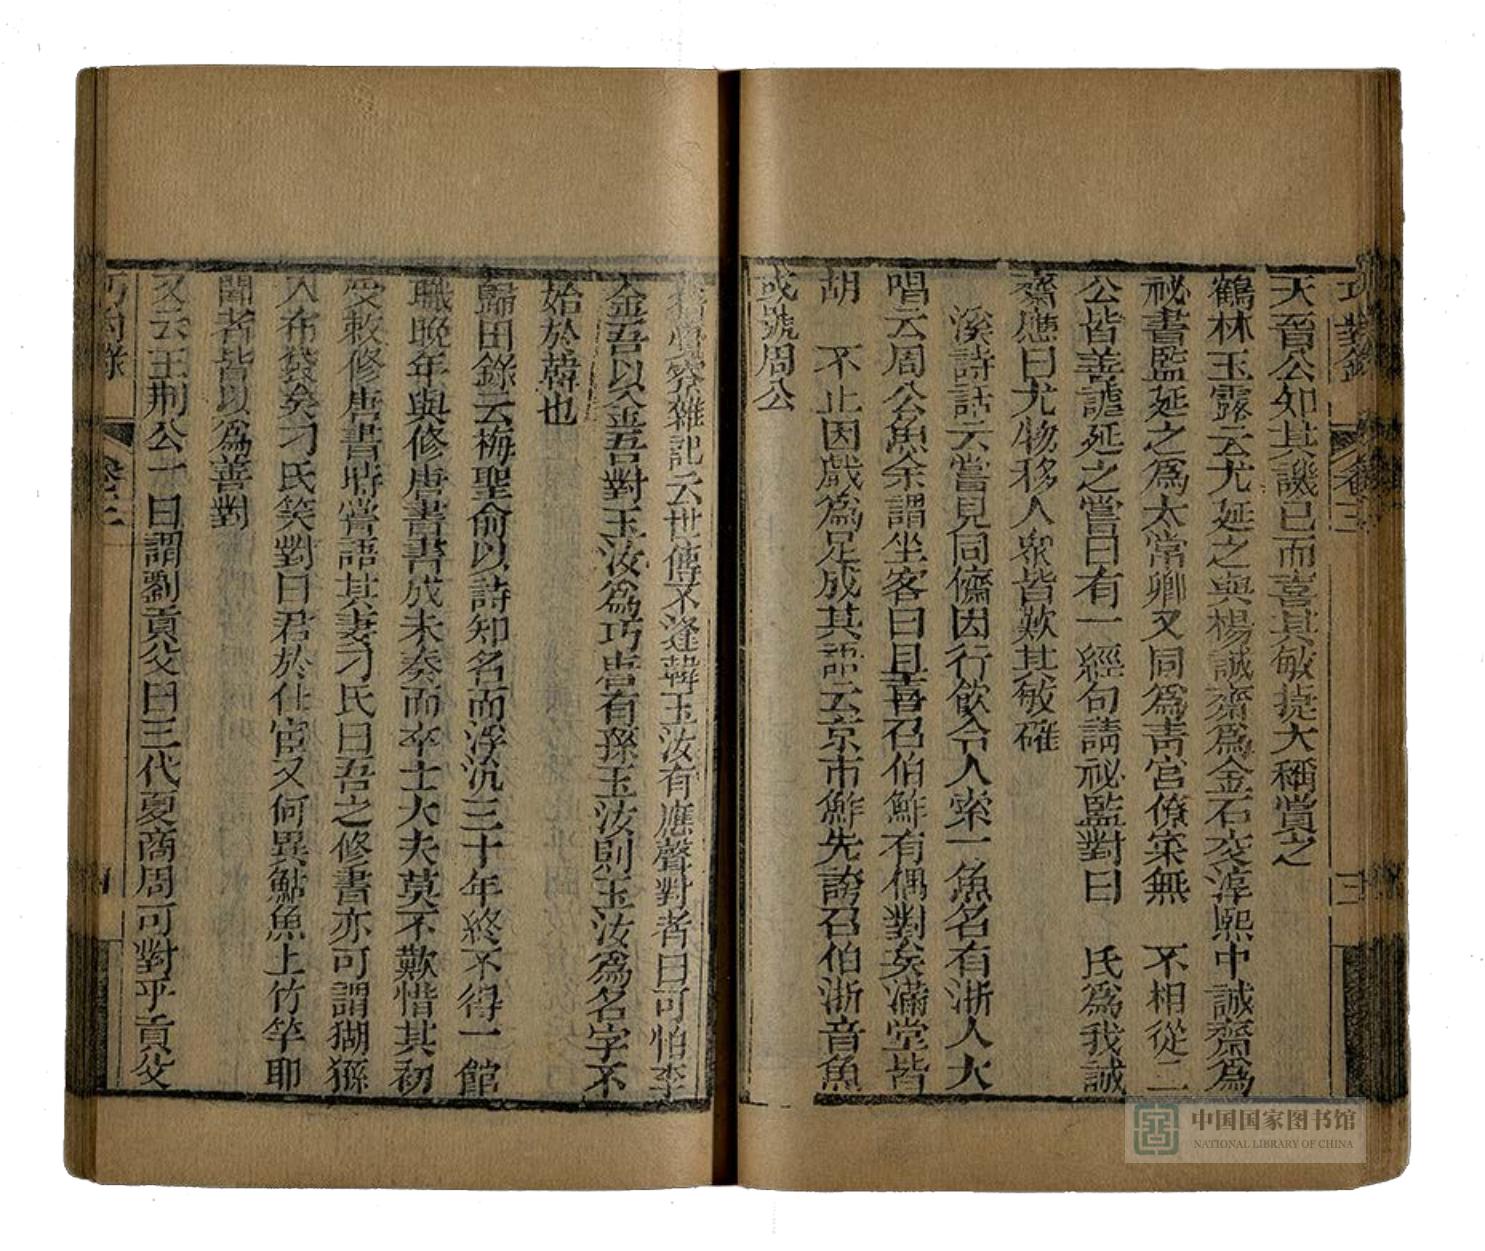 巧對錄 卷三 三
天晉公知其譏已而喜其敏捷大稱賞之
鶴林玉露云尤延之與楊誠齋為金石交淳熙中誠齋為
祕書監延之為太常卿又同為青宮僚寀無 不相從二
公皆善謔延之嘗曰有一經句請祕監對曰 氏為我誠
齋應曰尤物移人衆皆歎其敏確
溪詩話云嘗見同儕因行飲令人索一魚名有浙人大
唱云周公魚余謂坐客曰且喜召伯鮓有偶對矣滿堂皆
胡 不止因戲為足成其語云京市鮓先誇召伯浙音魚
或號周公
雜記云世傳不逢韓玉汝有應聲對者曰可怕李
金吾以金吾對玉汝為巧唐有孫玉汝則玉汝為名字不
始於韓也
歸田錄云梅聖俞以詩知名而浮沉三十年終不得一館
職晚年與修唐書書成未奏而卒士大夫莫不歎惜其初
受敕修唐書時嘗語其妻刁氏曰吾之修書亦可謂猢猻
入布袋矣刁氏笑對曰君於仕宦又何異鮎魚上竹竿耶
聞者皆以為善對
又云王荊公一日謂劉貢父曰三代夏商周可對乎貢父
巧對錄 卷三
中国国家图书馆
NATIONAL LIBRARY OF CHINA